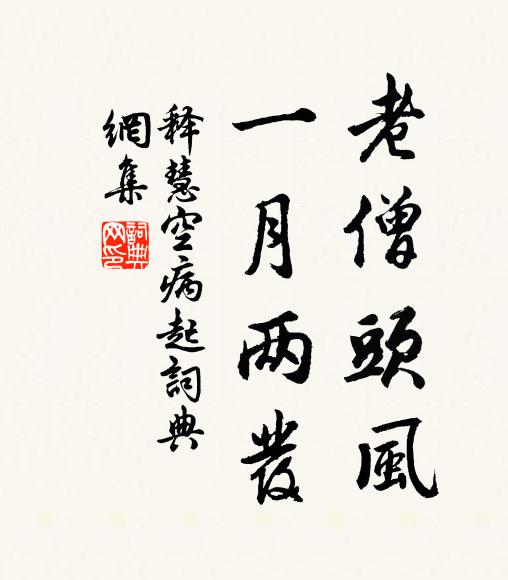 老僧頭風
一月两發
释慧空病起詞典
網集
詞典
网印